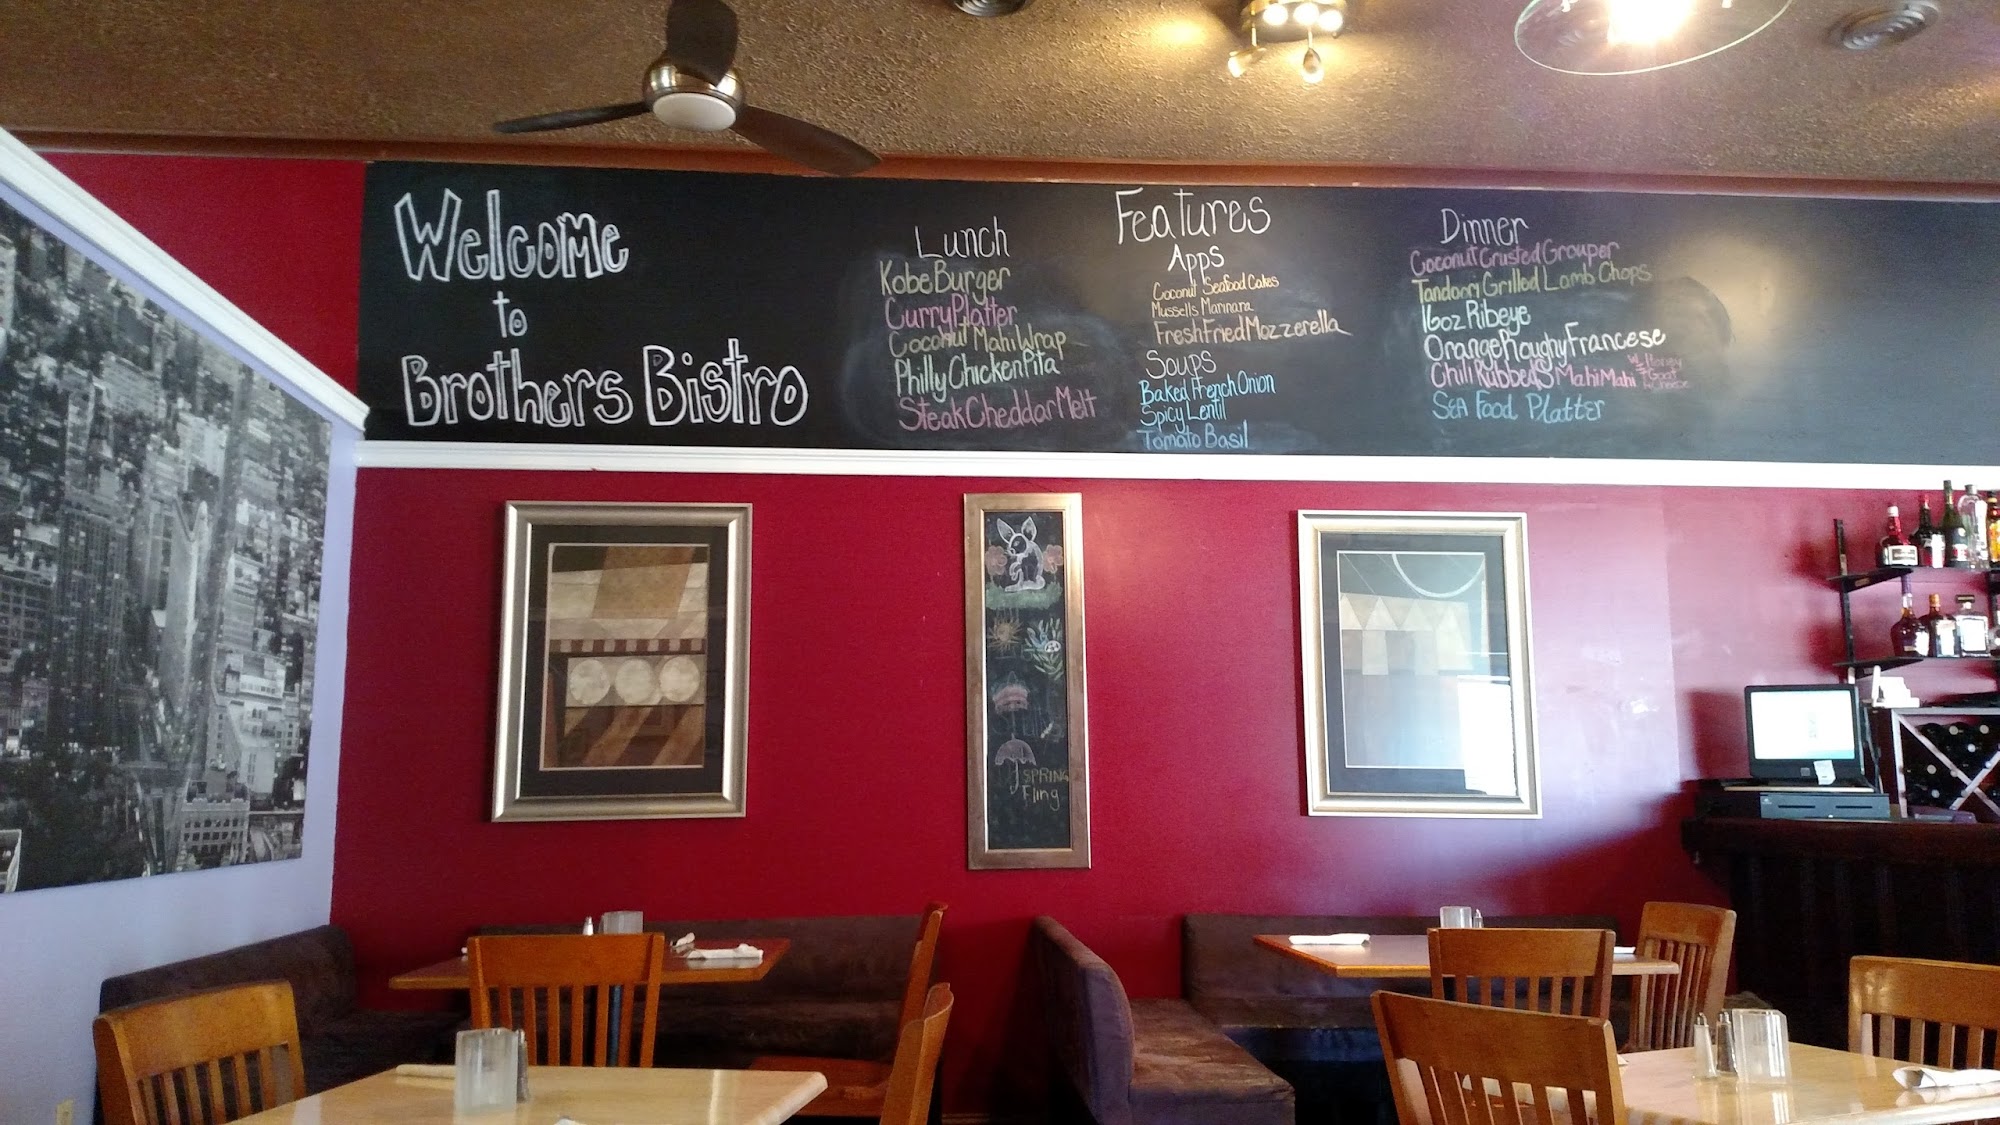 Welcome
to
Brothers Bistro
Lunch
Kobe Burger
Curry Platter
Coconut Mahi Wrap
Philly Chicken Pita
Steak Cheddar Melt
Features
Apps
Coconut Seafood Cakes
Mussels Marinara
Fresh Fried Mozzerella
Soups
Baked French Onion
Spicy Lentil
Tomato Basil
Dinner
Coconut Crusted Grouper
Tandoori Grilled Lamb Chops
16oz Ribeye
Orange Roughy Francese
Chili Rubbed Mahi Mahi
w/ Honey
Goat
Cheese
Sea Food Platter
SPRING
Fling